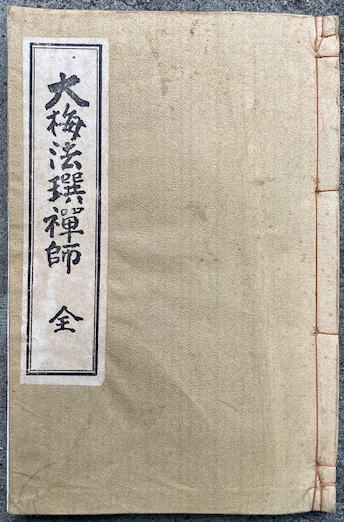 大梅法璞禪師 全